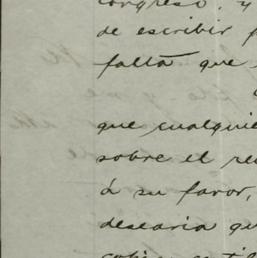 congreso, y
de escribir
falta que
que cualquie
sobre el re
á su favor,
desearia qu